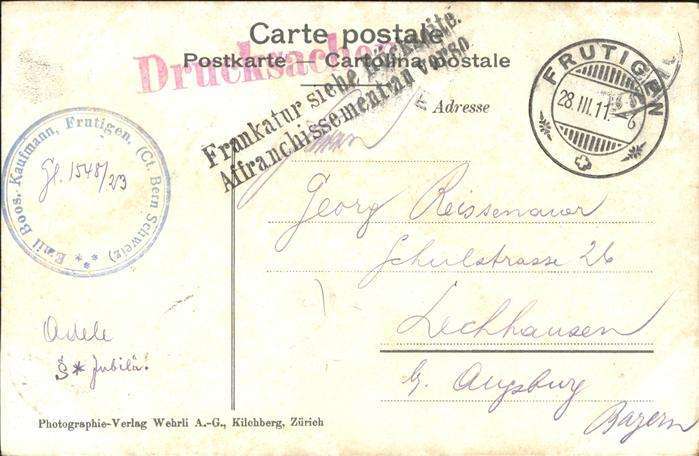 Carte postale
Postkarte — Cartolina postale
Drucksachen
Frankatur siehe Rückseite.
Affranchissement au verso
Adresse
FRUTIGEN
28.III.11.
Emil Boos, Kaufmann, Frutigen, (Ct. Bern Schweiz)
1548/23
Georg Reissenauer
Schulstrasse 26
Lechhausen
b. Augsburg
Bayern
Adele
§ * Jubilä.
Photographie-Verlag Wehrli A.-G., Kilchberg, Zürich